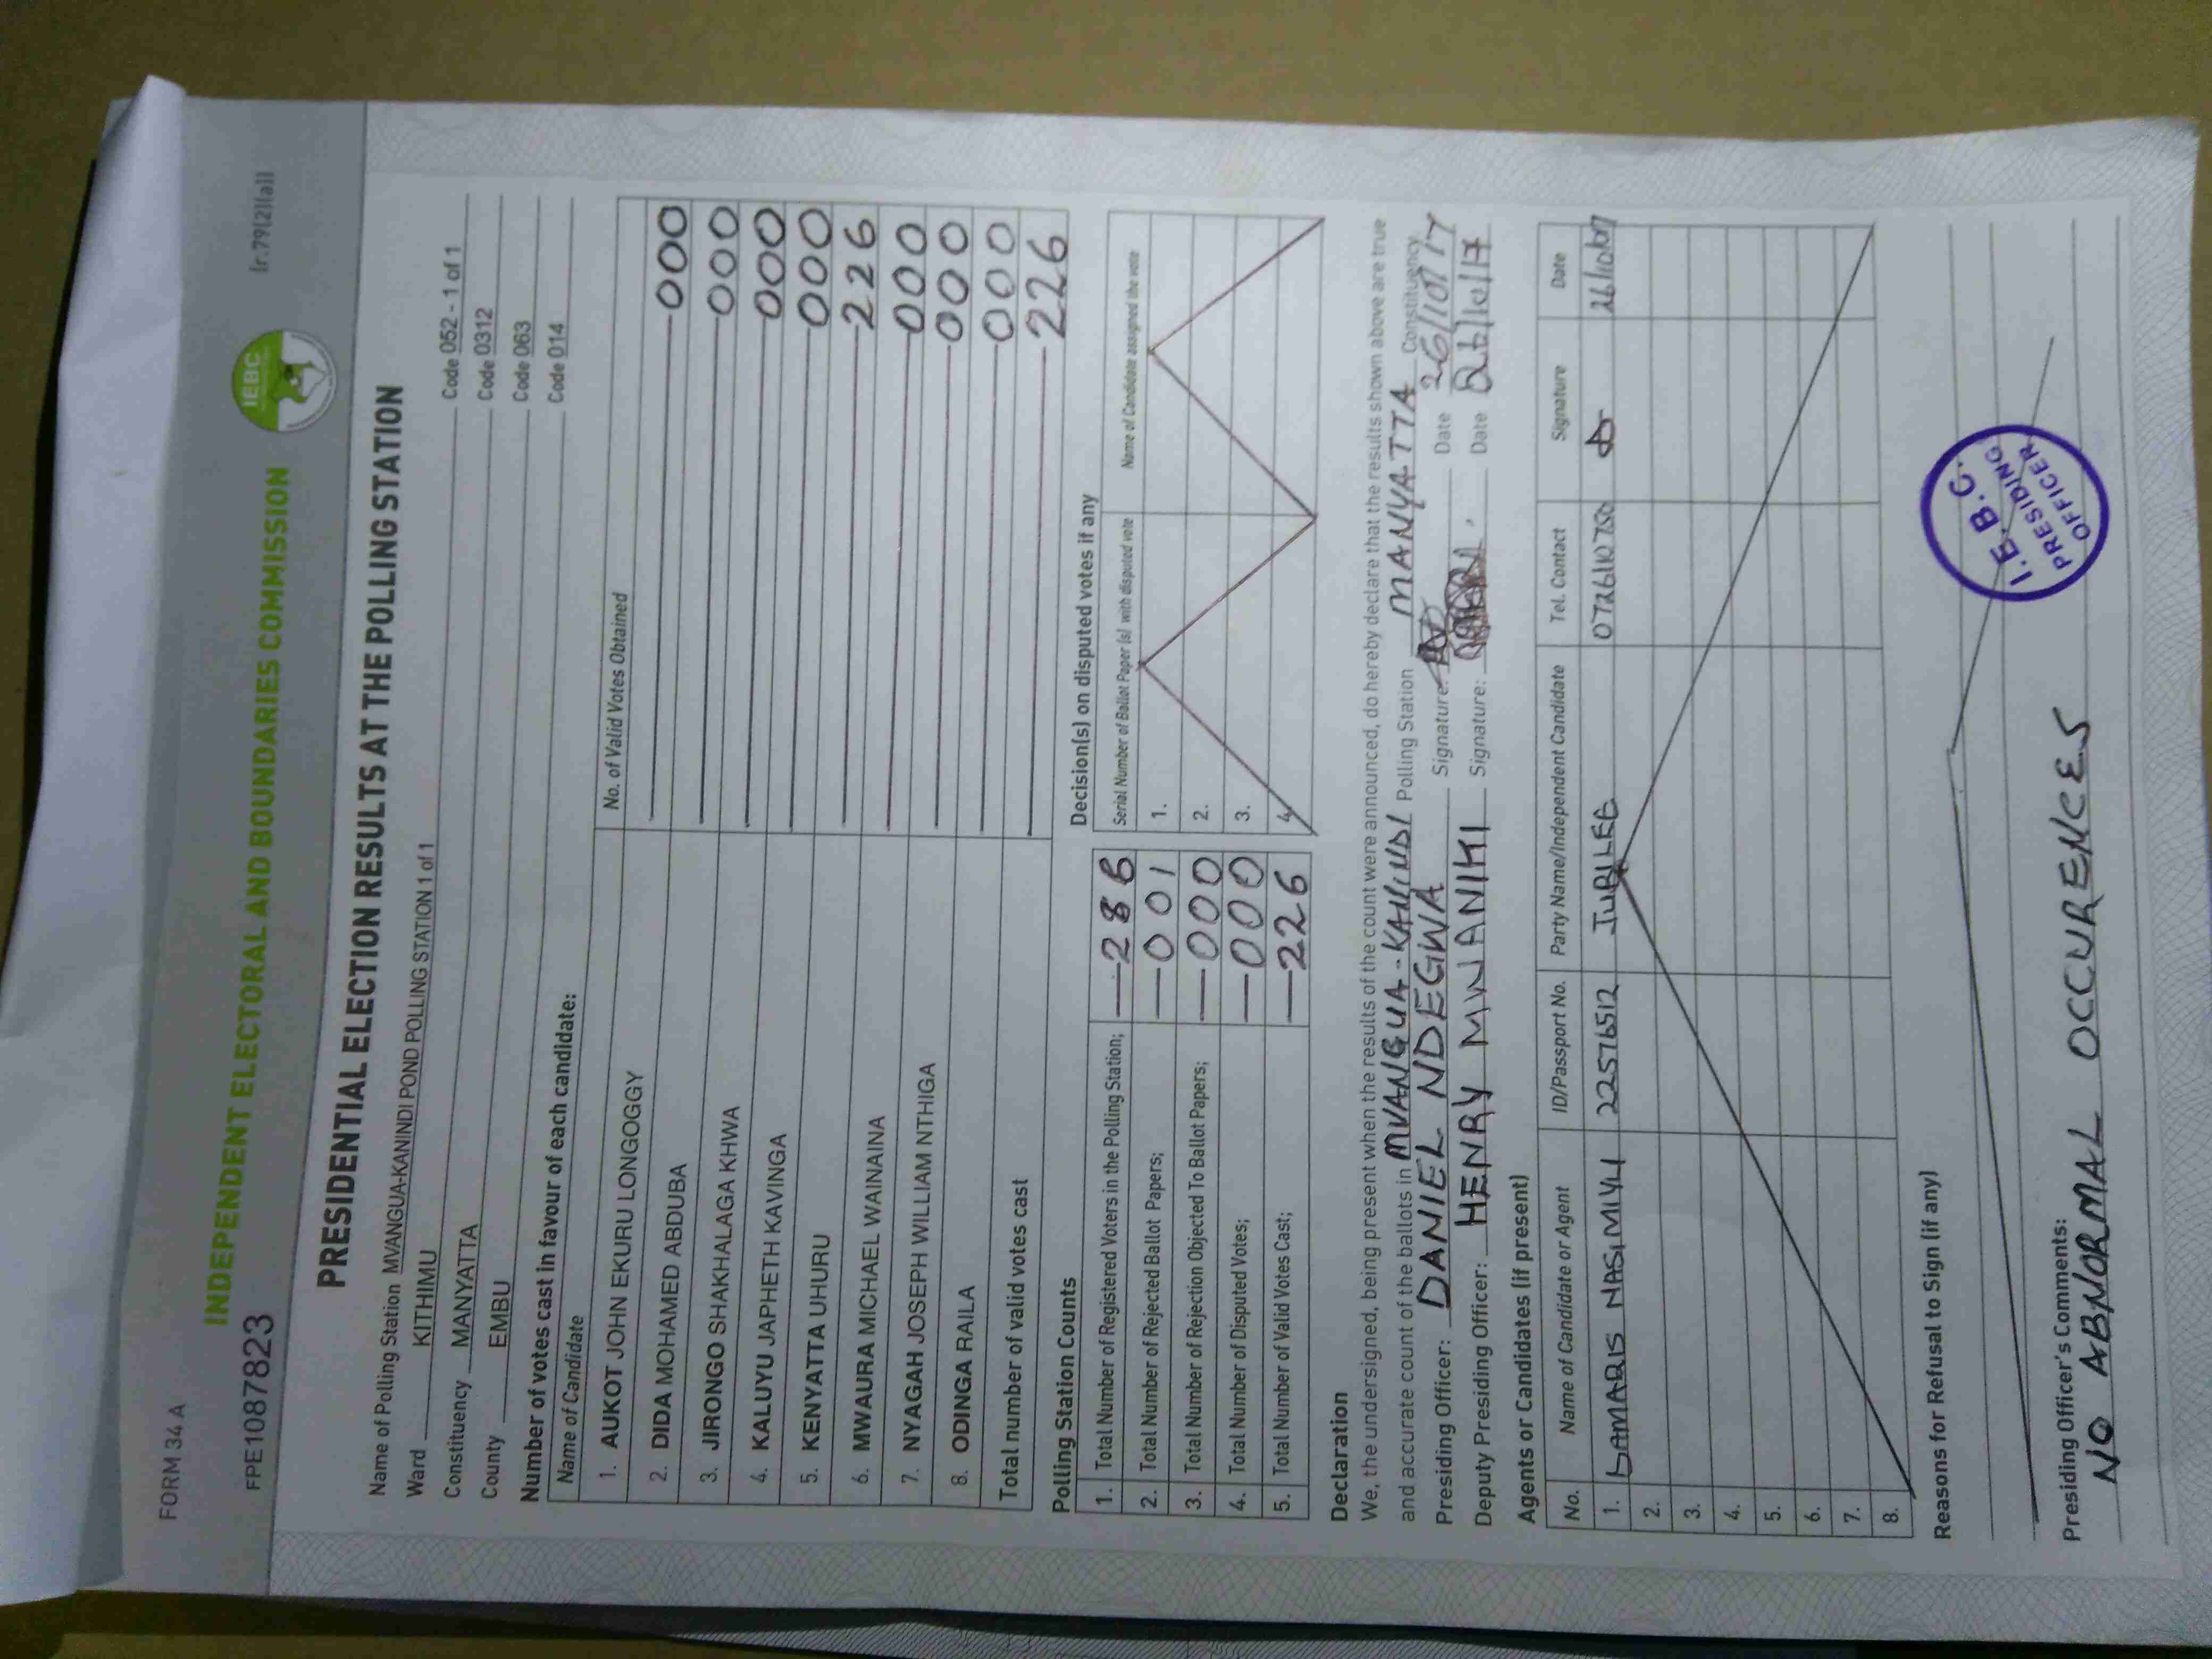 FORM 34 A
FPE1087823
INDEPENDENT ELECTORAL AND BOUNDARIES COMMISSION
IEBC
[r.79(2)(a)]
PRESIDENTIAL ELECTION RESULTS AT THE POLLING STATION
Name of Polling Station MVANGUA-KANINDI POND POLLING STATION 1 of 1 Code 052 - 1 of 1
Ward KITHIMU Code 0312
Constituency MANYATTA Code 063
County EMBU Code 014
Number of votes cast in favour of each candidate:
Name of Candidate No. of Valid Votes Obtained
1. AUKOT JOHN EKURU LONGOGGY 000
2. DIDA MOHAMED ABDUBA 000
3. JIRONGO SHAKHALAGA KHWA 000
4. KALUYU JAPHETH KAVINGA 000
5. KENYATTA UHURU 226
6. MWAURA MICHAEL WAINAINA 000
7. NYAGAH JOSEPH WILLIAM NTHIGA 000
8. ODINGA RAILA 000
Total number of valid votes cast 226
Polling Station Counts
1. Total Number of Registered Voters in the Polling Station;
2. Total Number of Rejected Ballot Papers; 001
3. Total Number of Rejection Objected To Ballot Papers; 000
4. Total Number of Disputed Votes; 000
5. Total Number of Valid Votes Cast; 226
Decision(s) on disputed votes if any
Serial Number of Ballot Paper (s) with disputed vote Name of Candidate assigned the vote
1.
2.
3.
4.
Declaration
We, the undersigned, being present when the results of the count were announced, do hereby declare that the results shown above are true
and accurate count of the ballots in MVANGUA-KANINDI Polling Station MANYATTA Constituency.
Presiding Officer: DANIEL NDEGWA Signature: Date 26/10/17
Deputy Presiding Officer: HENRY MWANIKI Signature: Date 26/10/17
Agents or Candidates (if present)
No. Name of Candidate or Agent ID/Passport No. Party Name/Independent Candidate Tel. Contact Signature Date
1. DAMARIS 22576512 JUBILEE
2.
3.
4.
5.
6.
7.
8.
Reasons for Refusal to Sign (if any)
I.E.B.C.
PRESIDING
OFFICER
Presiding Officer's Comments:
NO ABNORMAL OCCURENCES